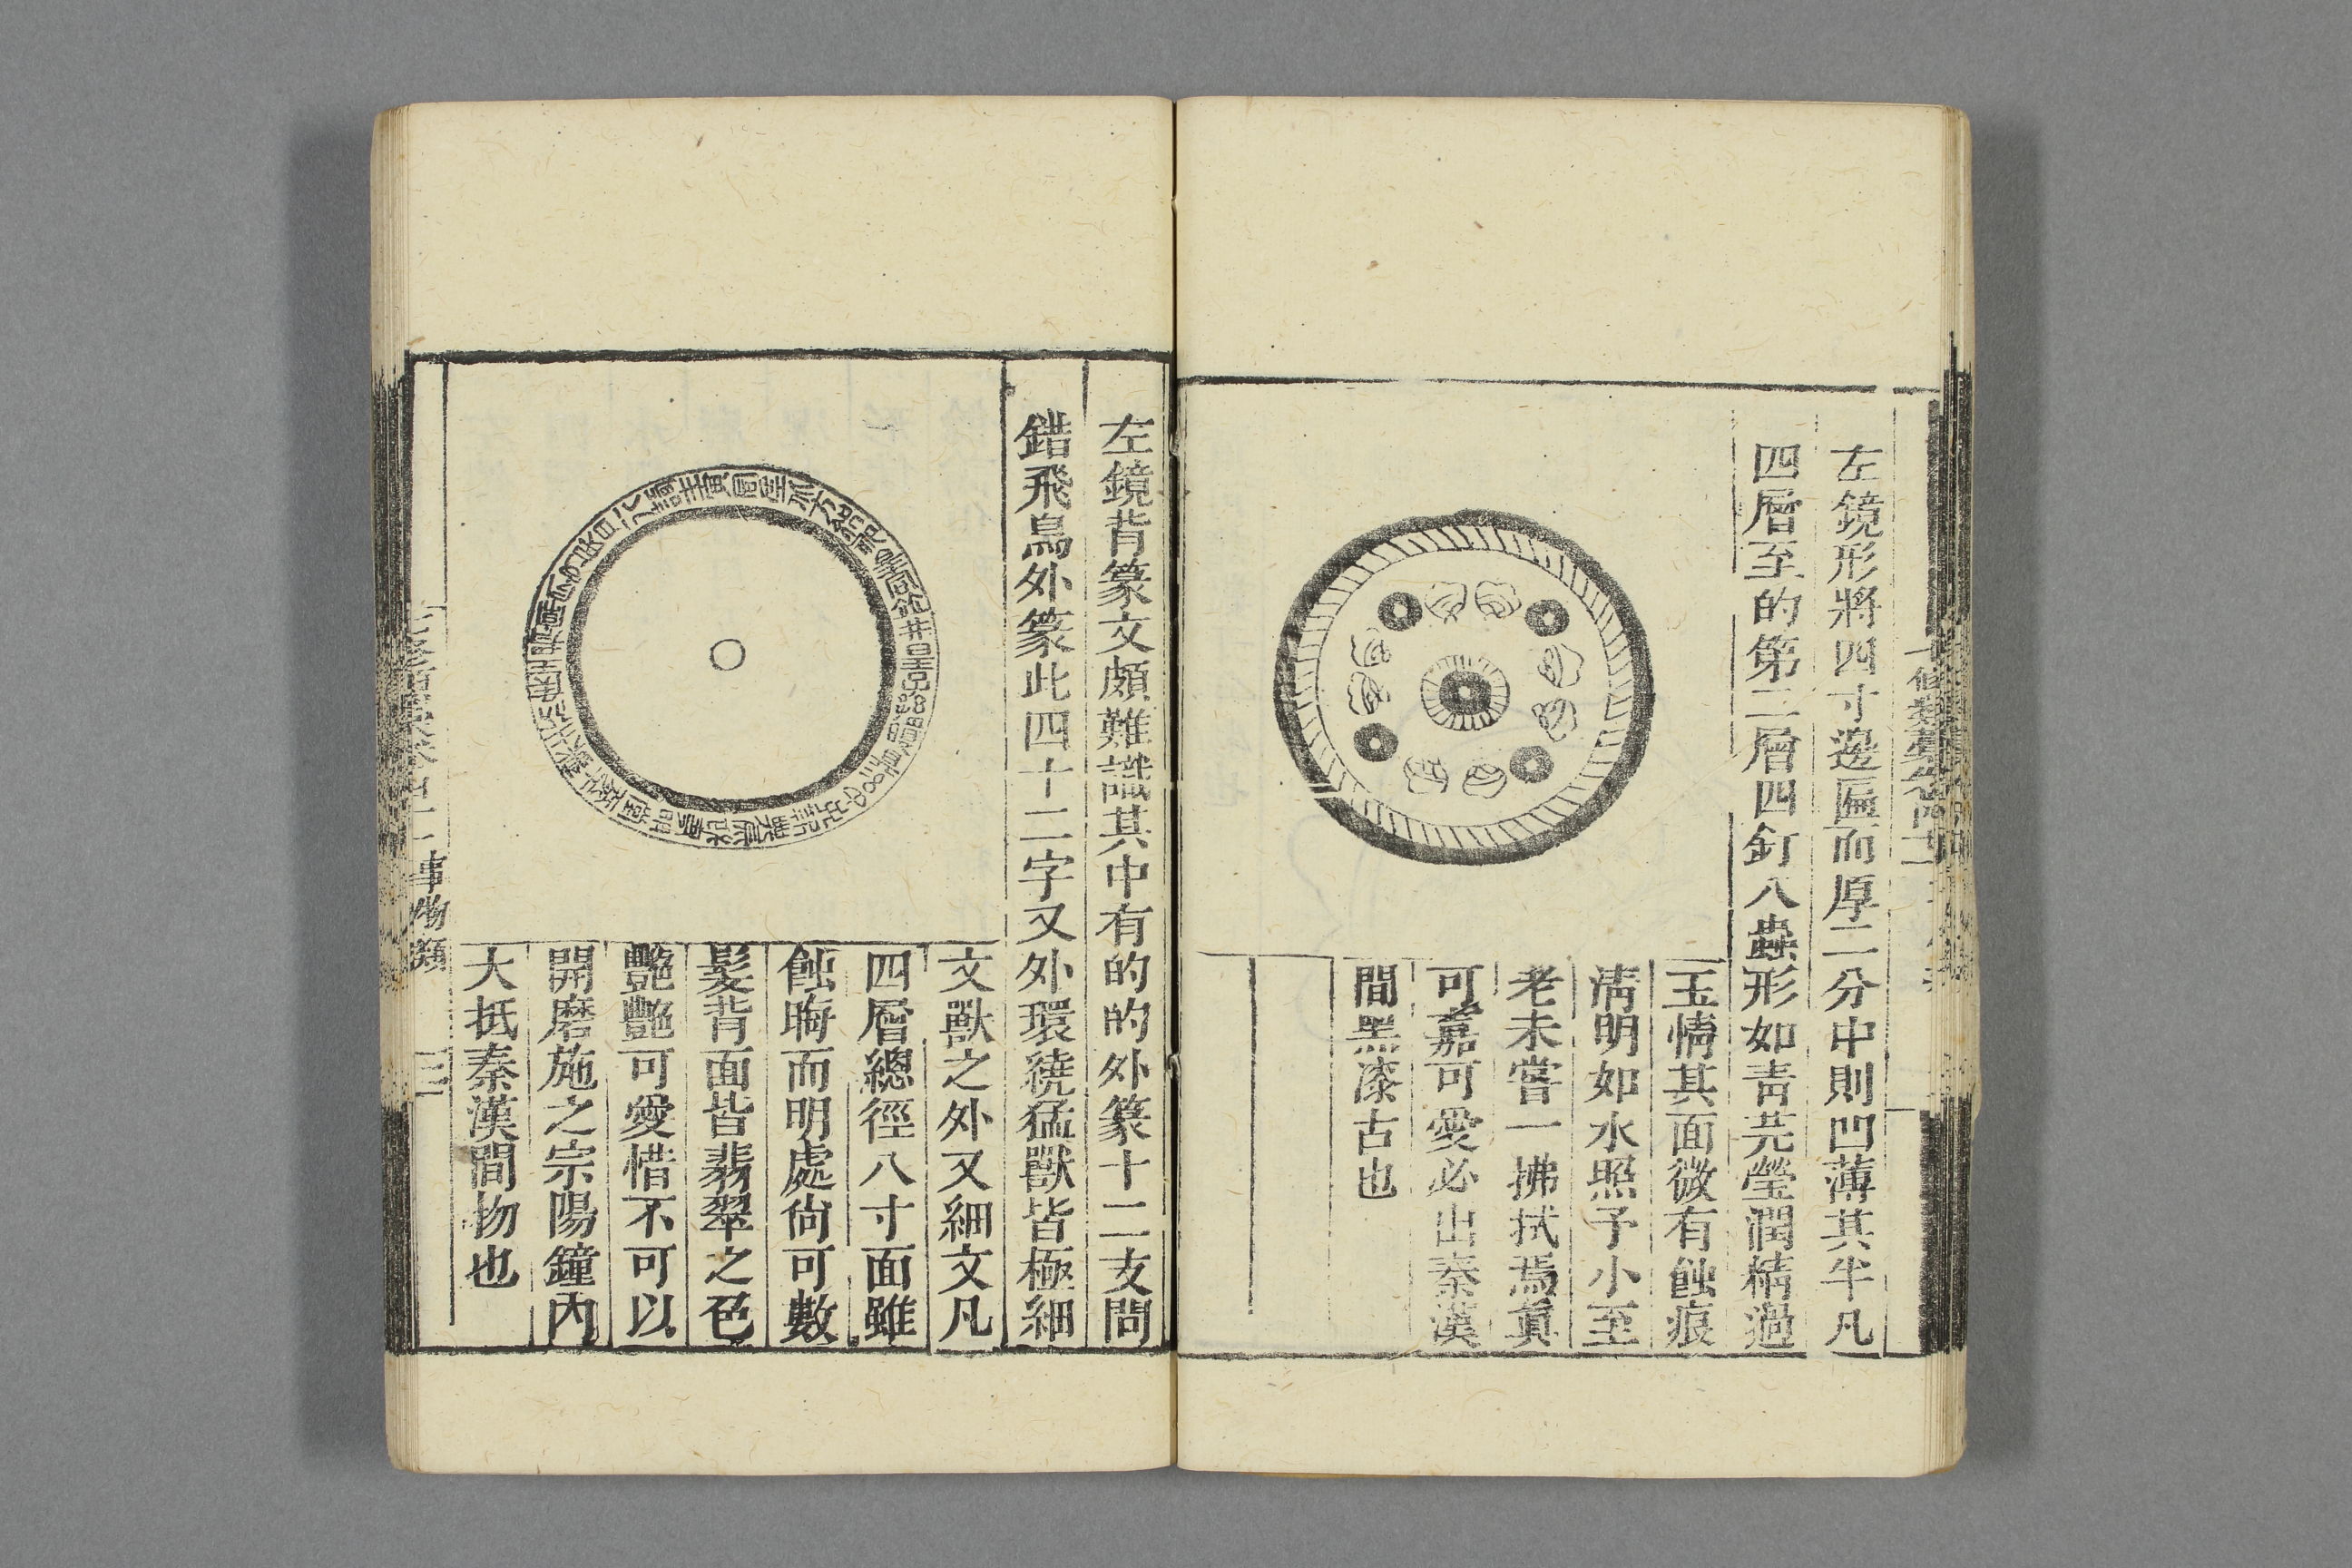 左鏡形將四寸邊匾而厚二分中則凹薄其半凡
四層至的第二層四釘八蟲形如靑芫瑩潤精過
玉情其面微有蝕痕
淸明如水照予小至
老未嘗一拂拭焉眞
可嘉可愛必出秦漢
間黑漆古也
左鏡背篆文頗難識其中有的的外篆十二支間
錯飛鳥外篆此四十二字又外環繞猛獸皆極細
文獸之外又細文凡
四層總徑八寸面雖
蝕晦而明處尙可數
髮背面皆翡翠之色
艷艷可愛惜不可以
開磨施之宗陽鐘內
大抵秦漢間物也
事物類
三